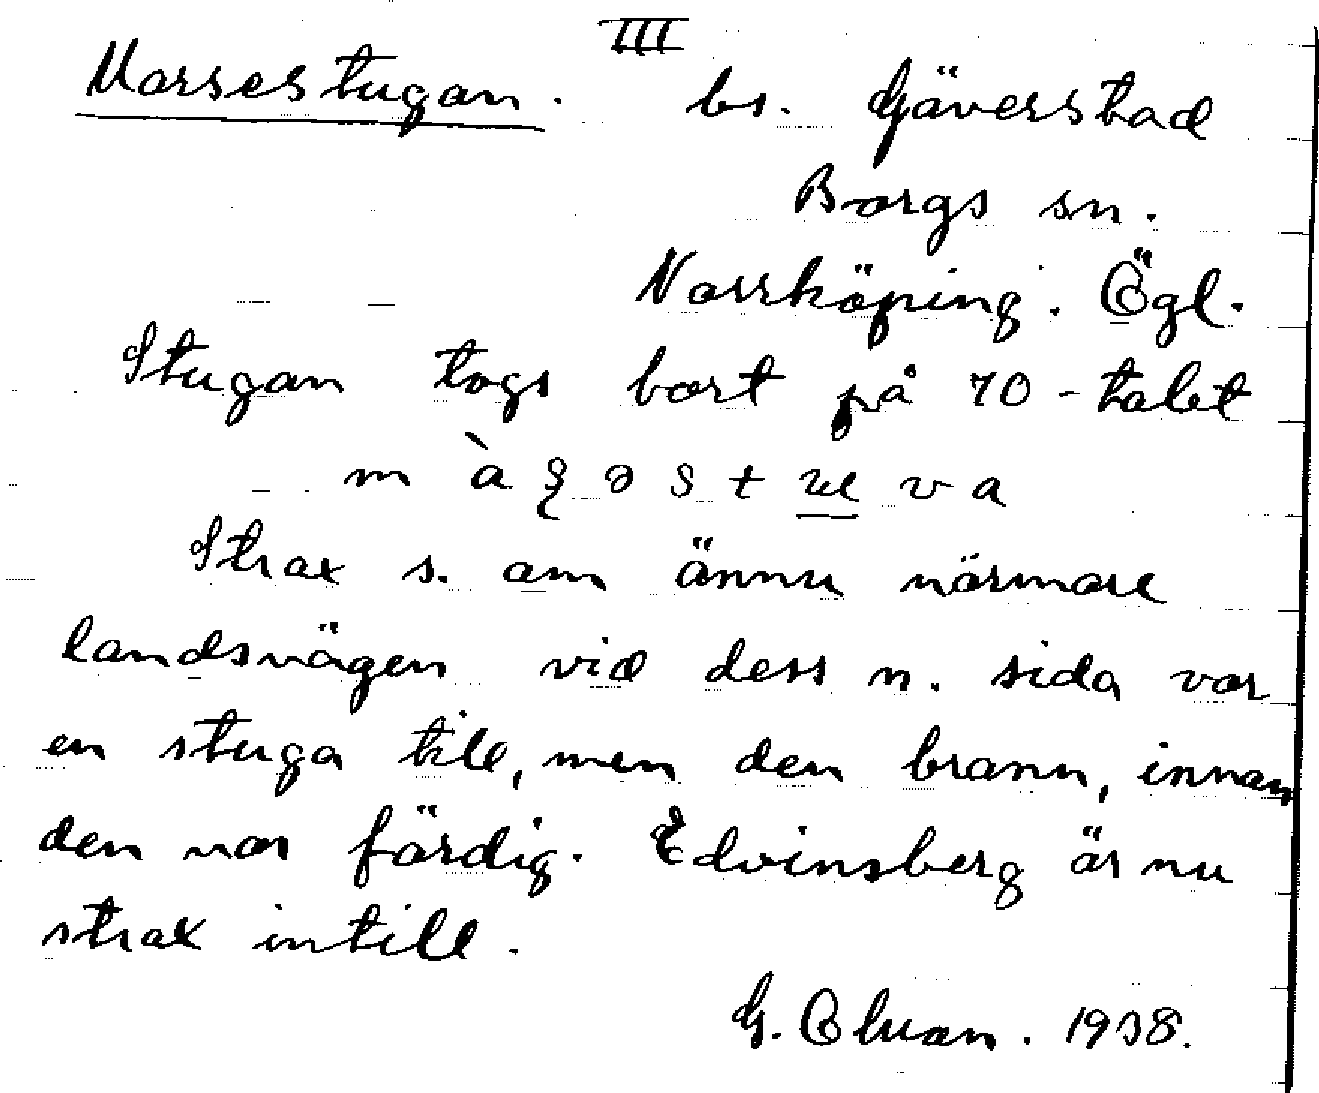 III
Marsestugan. bs. Gäverstad
Borgs sn.
Norrköping. Ögl.
Stugan togs bort på 70-talet
m à
Strax s. om ännu närmare
landsvägen vid dess n. sida var
en stuga till, men den brann, innan
den var färdig. Edvinsberg är nu
strax intill.
G. 1938.